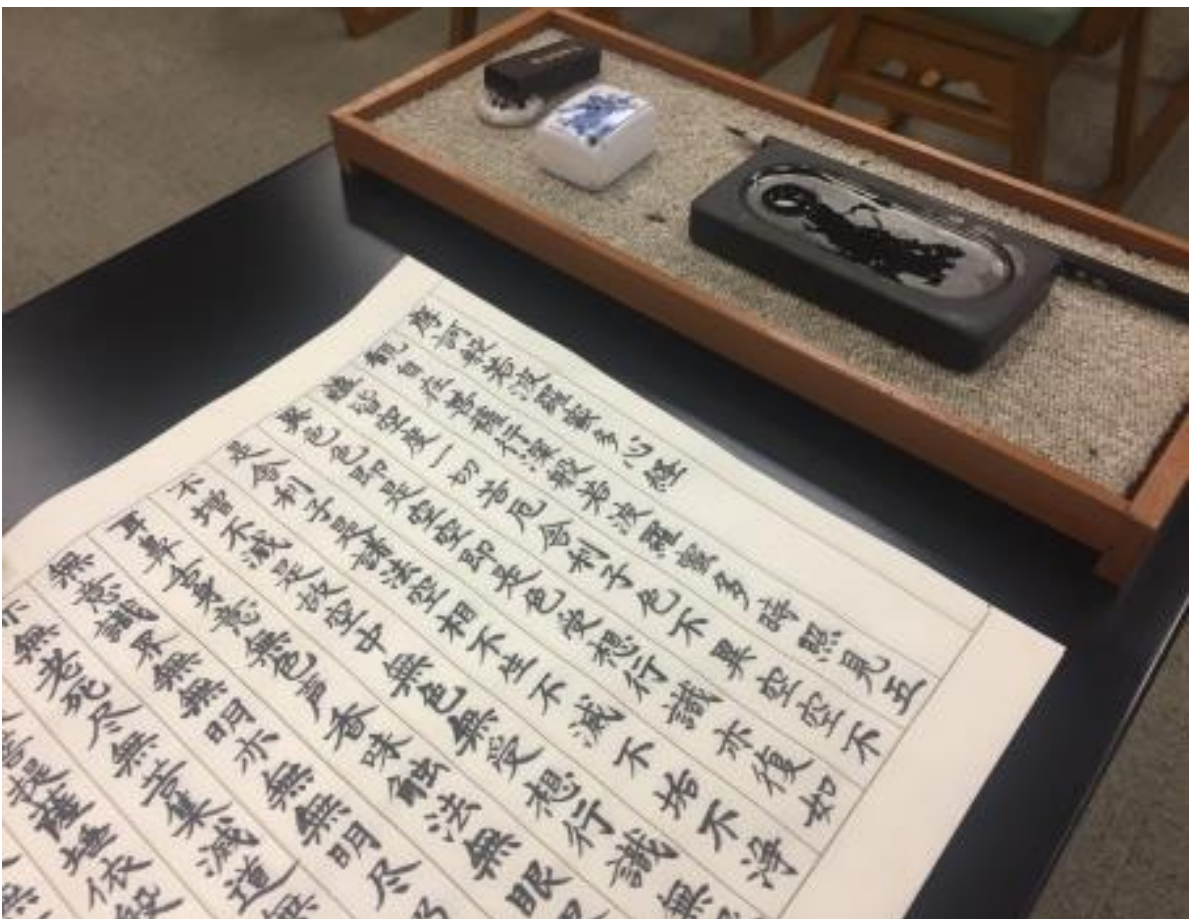 摩訶般若波羅蜜多心経
観自在菩薩行深般若波羅蜜多時照見五
蘊皆空度一切苦厄舎利子色不異空空不
異色色即是空空即是色受想行識亦復如
是舎利子是諸法空相不生不滅不垢不浄
不増不減是故空中無色無受想行識無
耳鼻舌身意無色声香味触法無眼
無意識界無無明亦無無明尽乃
無老死尽無苦集滅道無
菩提薩埵依般